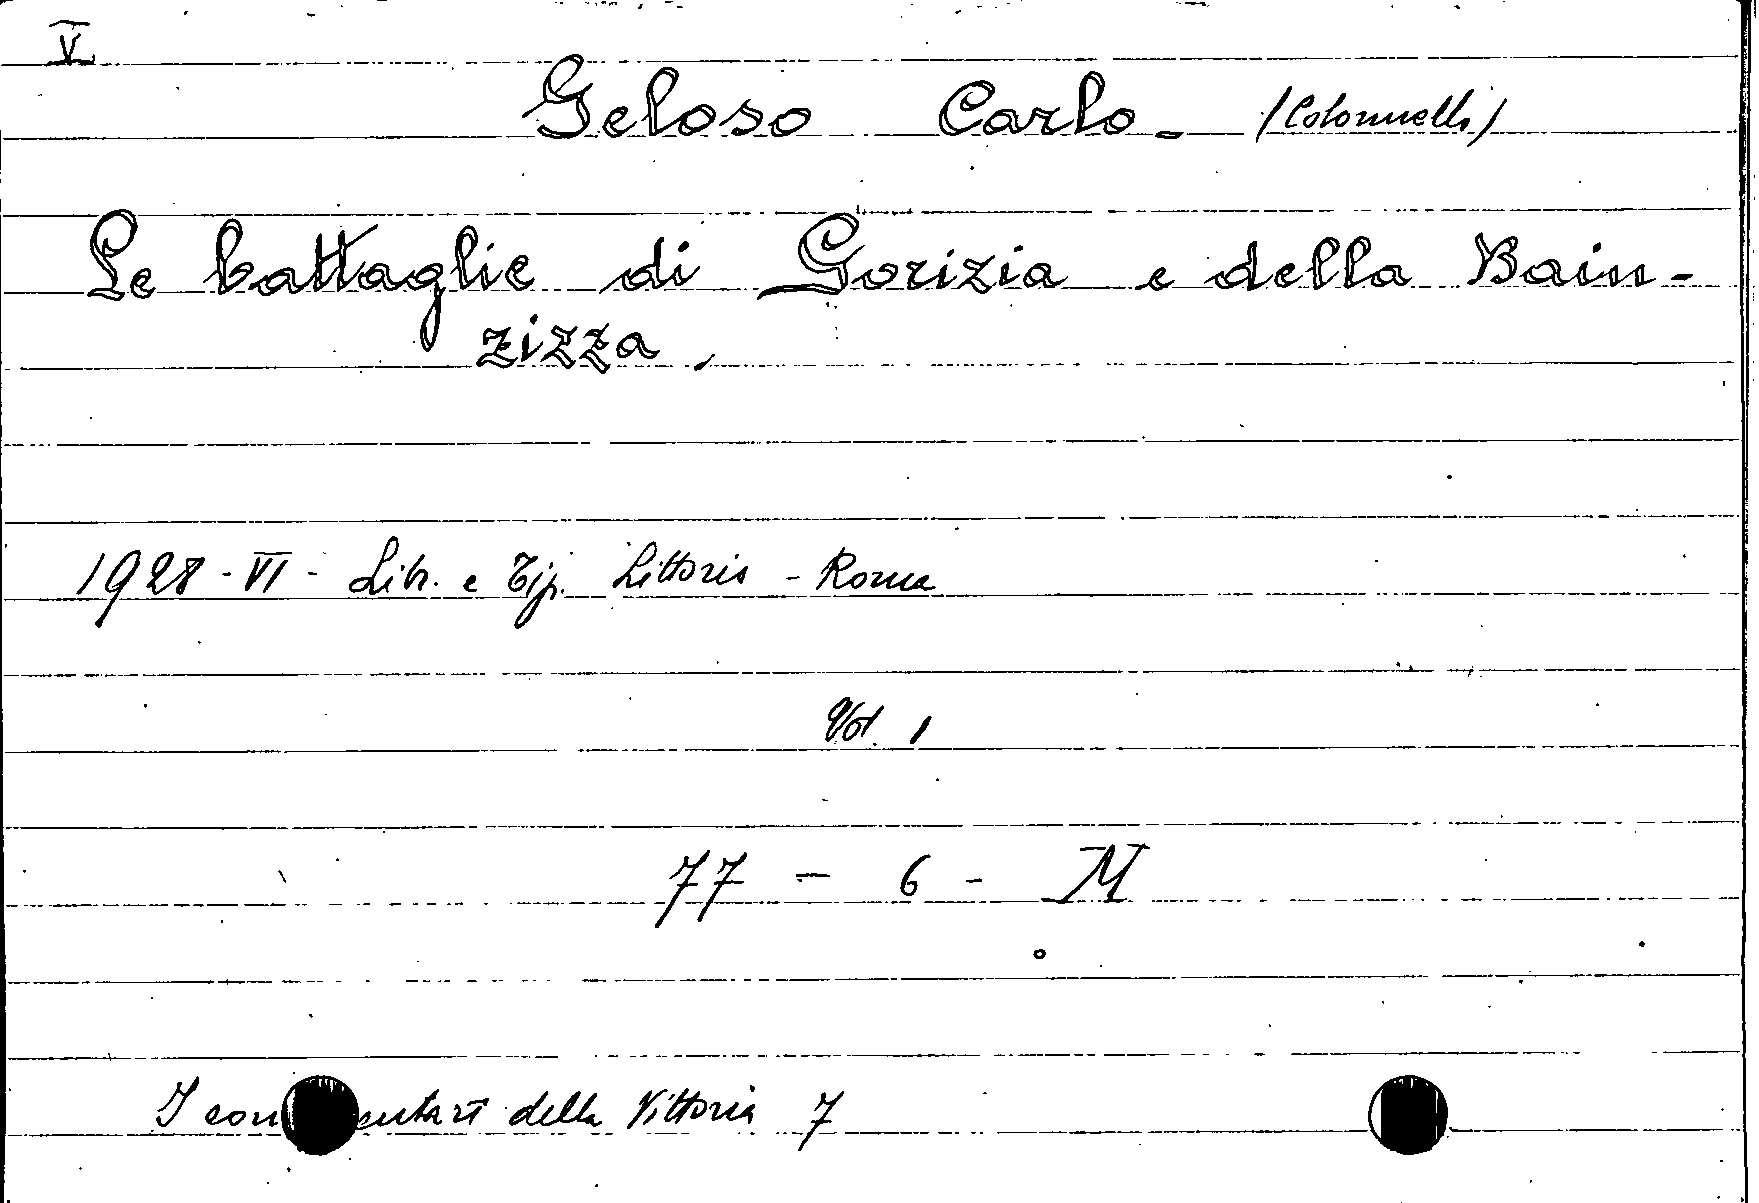 V
Geloso Carlo - (Colonnello)
Le battaglie di Gorizia e della Bain-
zizza.
1928 - VI - Libr. e Tip. Littorio - Roma
Vol. 1
77 - 6 - M
I commentari della Vittoria 7